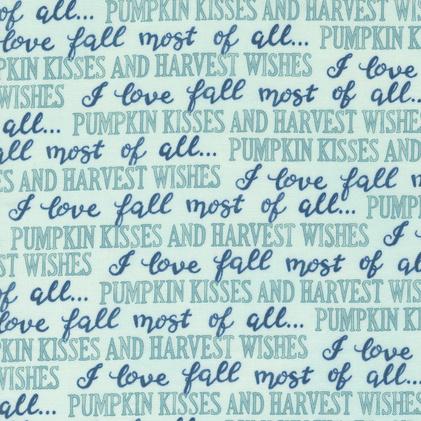 of all... PUMPKIN KISSES AND HARVEST
love fall most of all... PUMPKIN K
PKIN KISSES AND HARVEST WISHES I love
WISHES I love fall most of all...
all... PUMPKIN KISSES AND HARVEST WISHE
all most of all... PUMPKIN KISSES AND
ES AND HARVEST WISHES I love fall
I love fall most of all... PUMP
PUMPKIN KISSES AND HARVEST WISHES I
ST WISHES I love fall most of al
of all... PUMPKIN KISSES AND HARVEST WIS
love fall most of all... PUMPKIN KI
KIN KISSES AND HARVEST WISHES I love
WISHES I love fall most of all...
all... PUMPKIN KISSES AND HARVEST WISHES